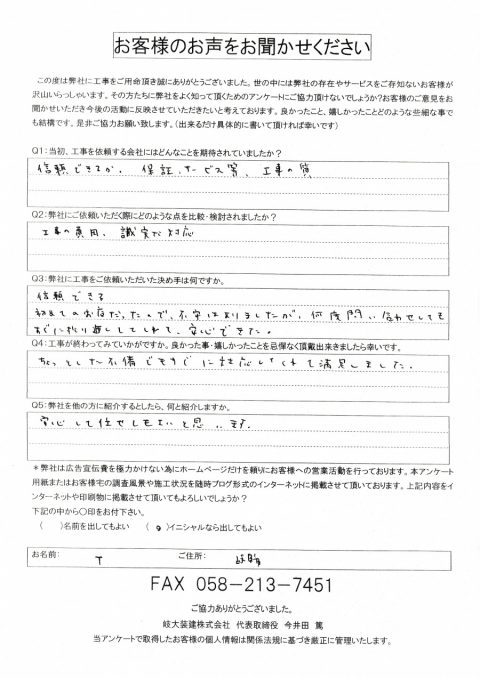 お客様のお声をお聞かせください
この度は弊社に工事をご用命頂き誠にありがとうございました。世の中には弊社の存在やサービスをご存知ないお客様が
沢山いらっしゃいます。その方たちに弊社をよく知って頂くためのアンケートにご協力頂けないでしょうか?お客様のご意見をお
聞かせいただき今後の活動に反映させていただきたいと考えております。良かったこと、嬉しかったことどのような些細な事で
も結構です。是非ご協力お願い致します。(出来るだけ具体的に書いて頂ければ幸いです)
Q1:当初、工事を依頼する会社にはどんなことを期待されていましたか?
信頼できるか、保証、サービス等、工事の質
Q2:弊社にご依頼いただく際にどのような点を比較・検討されましたか?
工事の費用、誠実な対応
Q3:弊社に工事をご依頼いただいた決め手は何ですか。
信頼できる
初めてのお店だったので、不安はありましたが、何度問い合わせしても
すぐに折り返ししてくれて、安心できた。
Q4:工事が終わってみていかがですか。良かった事・嬉しかったことを忌憚なく頂戴出来きましたら幸いです。
ちょっとした不備でもすぐに対応してくれて満足しました。
Q5:弊社を他の方に紹介するとしたら、何と紹介しますか。
安心して任せてもよいと思います。
*弊社は広告宣伝費を極力かけない為にホームページだけを頼りにお客様への営業活動を行っております。本アンケート
用紙またはお客様宅の調査風景や施工状況を随時ブログ形式のインターネットに掲載させて頂いております。上記内容をイ
ンターネットや印刷物に掲載させて頂いてもよろしいでしょうか?
下記の中から〇印をお付下さい。
( )名前を出してもよい ( o )イニシャルなら出してもよい
お名前: T ご住所: 岐阜
FAX 058-213-7451
ご協力ありがとうございました。
岐大装建株式会社 代表取締役 今井田 篤
当アンケートで取得したお客様の個人情報は関係法規に基づき厳正に管理いたします。